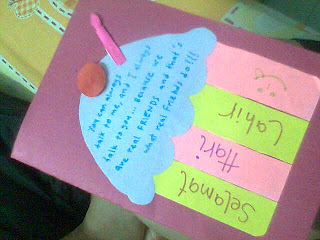 You can always
talk to me, and I always
talk to you... Because we
are real FRIENDS and that's
what real friends do!!!
Selamat
Hari
Lahir